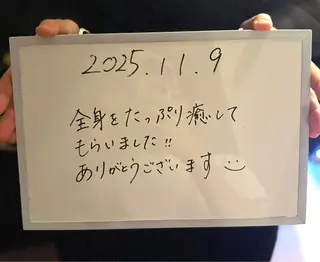 2025.11.9
全身をたっぷり癒して
もらいました!!
ありがとうございます